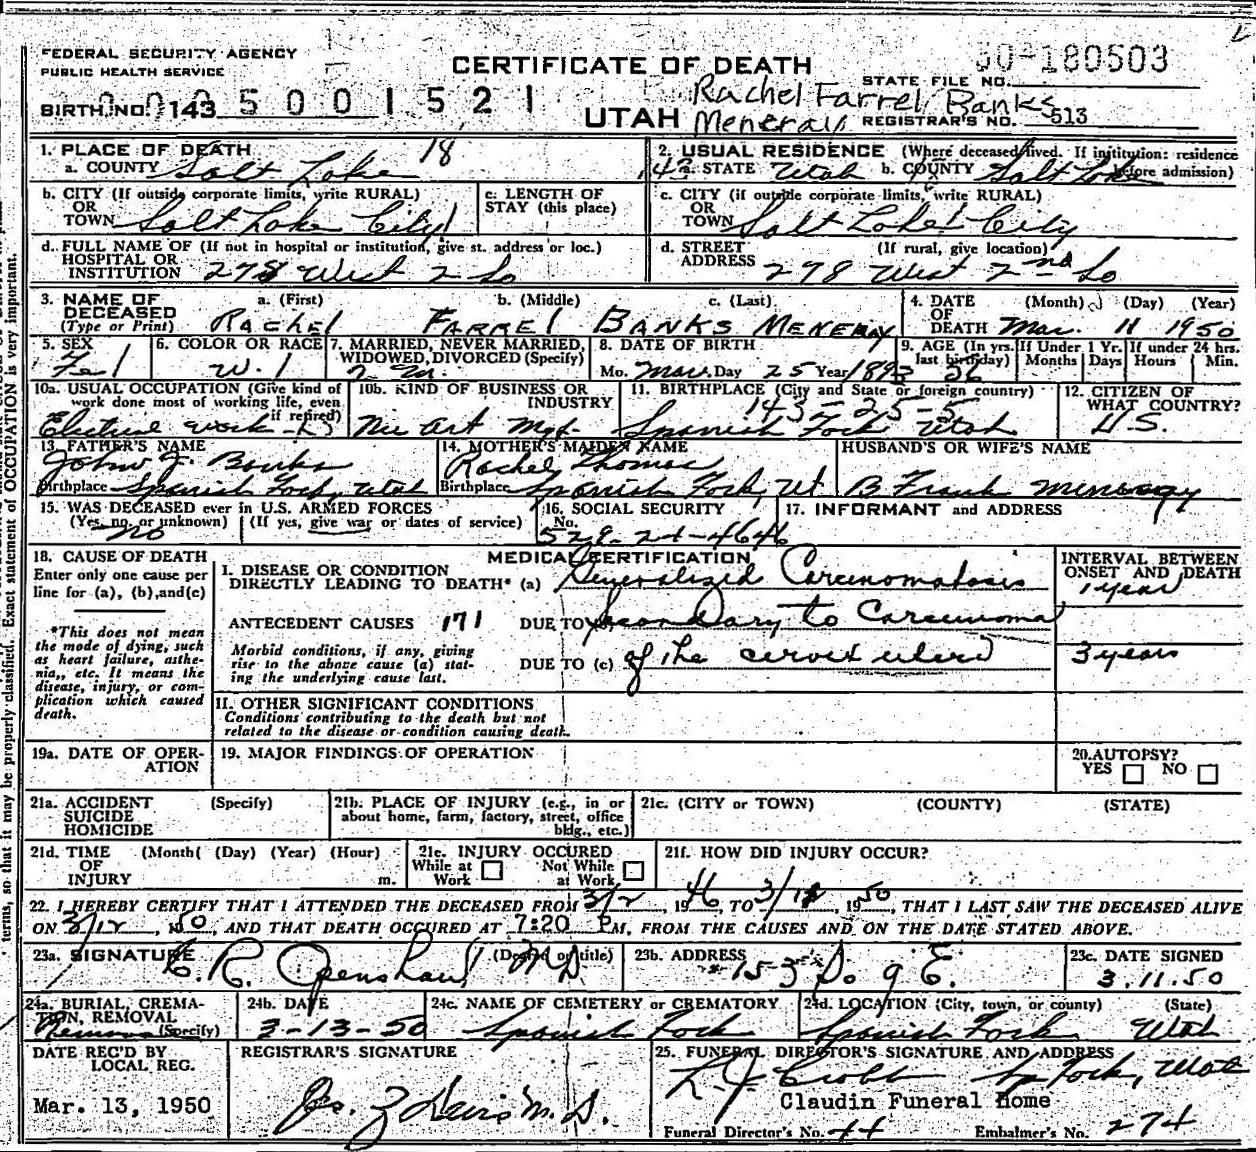 FEDERAL SECURITY AGENCY
PUBLIC HEALTH SERVICE
CERTIFICATE OF DEATH
STATE FILE NO. 50-180503
BIRTH NO. 143 5001521
UTAH
Rachel Farrel Banks
Menerary
REGISTRAR'S NO. 513
1. PLACE OF DEATH 18
a. COUNTY Salt Lake
2. USUAL RESIDENCE (Where deceased lived. If institution: residence before admission)
a. STATE Utah b. COUNTY Salt Lake
b. CITY (If outside corporate limits, write RURAL)
OR
TOWN Salt Lake City
c. LENGTH OF
STAY (this place)
c. CITY (if outside corporate limits, write RURAL)
OR
TOWN Salt Lake City
d. FULL NAME OF (If not in hospital or institution, give st. address or loc.)
HOSPITAL OR
INSTITUTION 278 West 2 So
d. STREET (If rural, give location)
ADDRESS 278 West 2nd So
3. NAME OF DECEASED (Type or Print) a. (First) b. (Middle) c. (Last)
RACHEL FARREL BANKS MENERAY
4. DATE OF DEATH (Month) (Day) (Year)
Mar. 11 1950
5. SEX
Fe
6. COLOR OR RACE
W.
7. MARRIED, NEVER MARRIED,
WIDOWED, DIVORCED (Specify)
8. DATE OF BIRTH
Mo. Mar. Day 25 Year 1893
9. AGE (In yrs. last birthday) 56
If Under 1 Yr. Months Days
If under 24 hrs. Hours Min.
10a. USUAL OCCUPATION (Give kind of work done most of working life, even if retired)
10b. KIND OF BUSINESS OR INDUSTRY
Nu Art Mgf.
11. BIRTHPLACE (City and State or foreign country)
143-25-5
Spanish Fork Utah
12. CITIZEN OF WHAT COUNTRY?
U.S.
13. FATHER'S NAME
John J. Banks
Birthplace Spanish Fork, Utah
14. MOTHER'S MAIDEN NAME
Rachel Thomas
Birthplace Spanish Fork, Ut
HUSBAND'S OR WIFE'S NAME
B Frank
15. WAS DECEASED ever in U.S. ARMED FORCES
(Yes, no, or unknown) (If yes, give war or dates of service)
no
16. SOCIAL SECURITY
No. 529-24-4646
17. INFORMANT and ADDRESS
18. CAUSE OF DEATH
Enter only one cause per
line for (a), (b), and (c)
*This does not mean
the mode of dying, such
as heart failure, asthe-
nia,, etc. It means the
disease, injury, or com-
plication which caused
death.
MEDICAL CERTIFICATION
I. DISEASE OR CONDITION
DIRECTLY LEADING TO DEATH* (a) Generalized Carcinomatosis
ANTECEDENT CAUSES 171 DUE TO (b) secondary to Carcinoma
Morbid conditions, if any, giving
rise to the above cause (a) stat-
ing the underlying cause last.
DUE TO (c) of the cervix uteri
INTERVAL BETWEEN
ONSET AND DEATH
1 year
3 years
II. OTHER SIGNIFICANT CONDITIONS
Conditions contributing to the death but not
related to the disease or condition causing death.
19a. DATE OF OPER-
ATION
19. MAJOR FINDINGS OF OPERATION
20. AUTOPSY?
YES NO
21a. ACCIDENT (Specify)
SUICIDE
HOMICIDE
21b. PLACE OF INJURY (e.g., in or
about home, farm, factory, street, office
bldg., etc.)
21c. (CITY or TOWN) (COUNTY) (STATE)
21d. TIME (Month( (Day) (Year) (Hour)
OF
INJURY m.
21e. INJURY OCCURED
While at Work Not While at Work
21f. HOW DID INJURY OCCUR?
22. I HEREBY CERTIFY THAT I ATTENDED THE DECEASED FROM 3/2, 1946, TO 3/11 1950, THAT I LAST SAW THE DECEASED ALIVE
ON 3/12, 1950, AND THAT DEATH OCCURED AT 7:20 P M, FROM THE CAUSES AND ON THE DATE STATED ABOVE.
23a. SIGNATURE (Degree or title)
C. R. Openshaw M D
23b. ADDRESS
153 So 9 E.
23c. DATE SIGNED
3.11.50
24a. BURIAL, CREMA-
TION, REMOVAL
Removal (Specify)
24b. DATE
3-13-50
24c. NAME OF CEMETERY or CREMATORY
Spanish Fork
24d. LOCATION (City, town, or county) (State)
Spanish Fork Utah
DATE REC'D BY
LOCAL REG.
Mar. 13, 1950
REGISTRAR'S SIGNATURE
Jos. Z Davis M.D.
25. FUNERAL DIRECTOR'S SIGNATURE AND ADDRESS
Sp Fork, Utah
Claudin Funeral Home
Funeral Director's No. 44 Embalmer's No. 274
terms, so that it may be properly classified. Exact statement of OCCUPATION is very important.